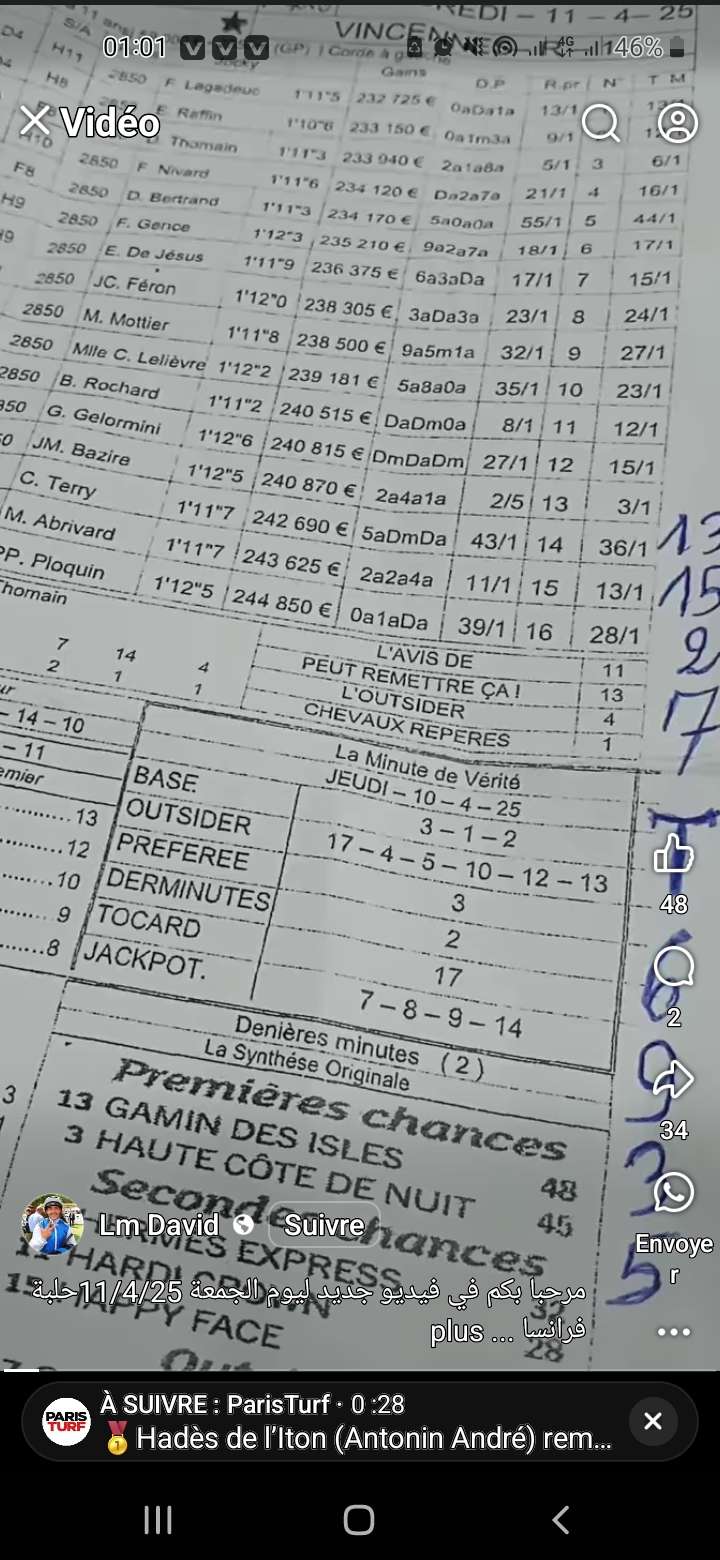 VENDREDI – 11 – 4 – 25
VINCENN
01:01
46%
(GP) | Corde à gauche
S/A
Gains
D.P
R.pr
N°
T M
D4
H11
2850 F. Lagadeuc 1'11"5 232 725 € 0aDa1a 13/1
H8
E. Raffin 1'10"6 233 150 € 0a1m3a 9/1
Vidéo
H10
Thomain 1'11"3 233 940 € 2a1a8a 5/1 3 6/1
F8 2850 F. Nivard 1'11"6 234 120 € Da2a7a 21/1 4 16/1
H9 2850 D. Bertrand 1'11"3 234 170 € 5a0a0a 55/1 5 44/1
2850 F. Gence 1'12"3 235 210 € 9a2a7a 18/1 6 17/1
2850 E. De Jésus 1'11"9 236 375 € 6a3aDa 17/1 7 15/1
2850 JC. Féron 1'12"0 238 305 € 3aDa3a 23/1 8 24/1
2850 M. Mottier 1'11"8 238 500 € 9a5m1a 32/1 9 27/1
2850 Mlle C. Lelièvre 1'12"2 239 181 € 5a8a0a 35/1 10 23/1
2850 B. Rochard 1'11"2 240 515 € DaDm0a 8/1 11 12/1
850 G. Gelormini 1'12"6 240 815 € DmDaDm 27/1 12 15/1
0 JM. Bazire 1'12"5 240 870 € 2a4a1a 2/5 13 3/1
C. Terry 1'11"7 242 690 € 5aDmDa 43/1 14 36/1
M. Abrivard 1'11"7 243 625 € 2a2a4a 11/1 15 13/1
PP. Ploquin 1'12"5 244 850 € 0a1aDa 39/1 16 28/1
13
15
2
7
T
6
9
3
5
Thomain
7 14 4
2 1 1
L'AVIS DE 11
PEUT REMETTRE ÇA ! 13
L'OUTSIDER 4
CHEVAUX REPERES 1
– 14 – 10
– 11
emier
13
12
10
9
8
La Minute de Vérité
JEUDI – 10 – 4 – 25
BASE 3 – 1 – 2
OUTSIDER 17 – 4 – 5 – 10 – 12 – 13
PREFEREE 3
DERMINUTES 2
TOCARD 17
JACKPOT. 7 – 8 – 9 – 14
Denières minutes ( 2 )
La Synthése Originale
Premiéres chances
13 GAMIN DES ISLES 48
3 HAUTE CÔTE DE NUIT 45
Secondes chances
HERMES EXPRESS 32
HARDI CROWN
15 HAPPY FACE 28
48
2
34
Envoye
r
Lm David
Suivre
مرحبا بكم في فيديو جديد ليوم الجمعة 11/4/25حلبة
فرانسا ... plus
PARIS
TURF
À SUIVRE : ParisTurf · 0 :28
Hadès de l'Iton (Antonin André) rem...